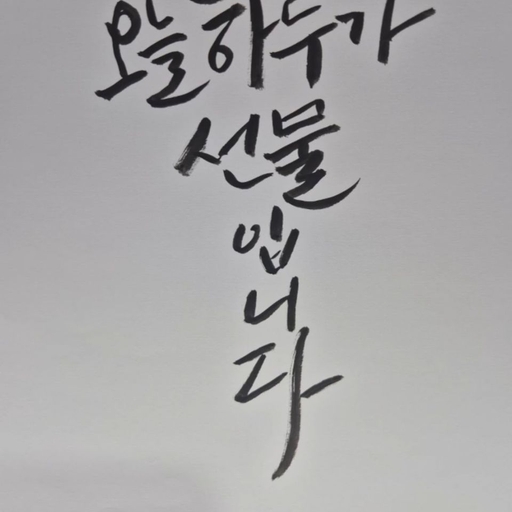 오늘하루가
선물
입
니
다